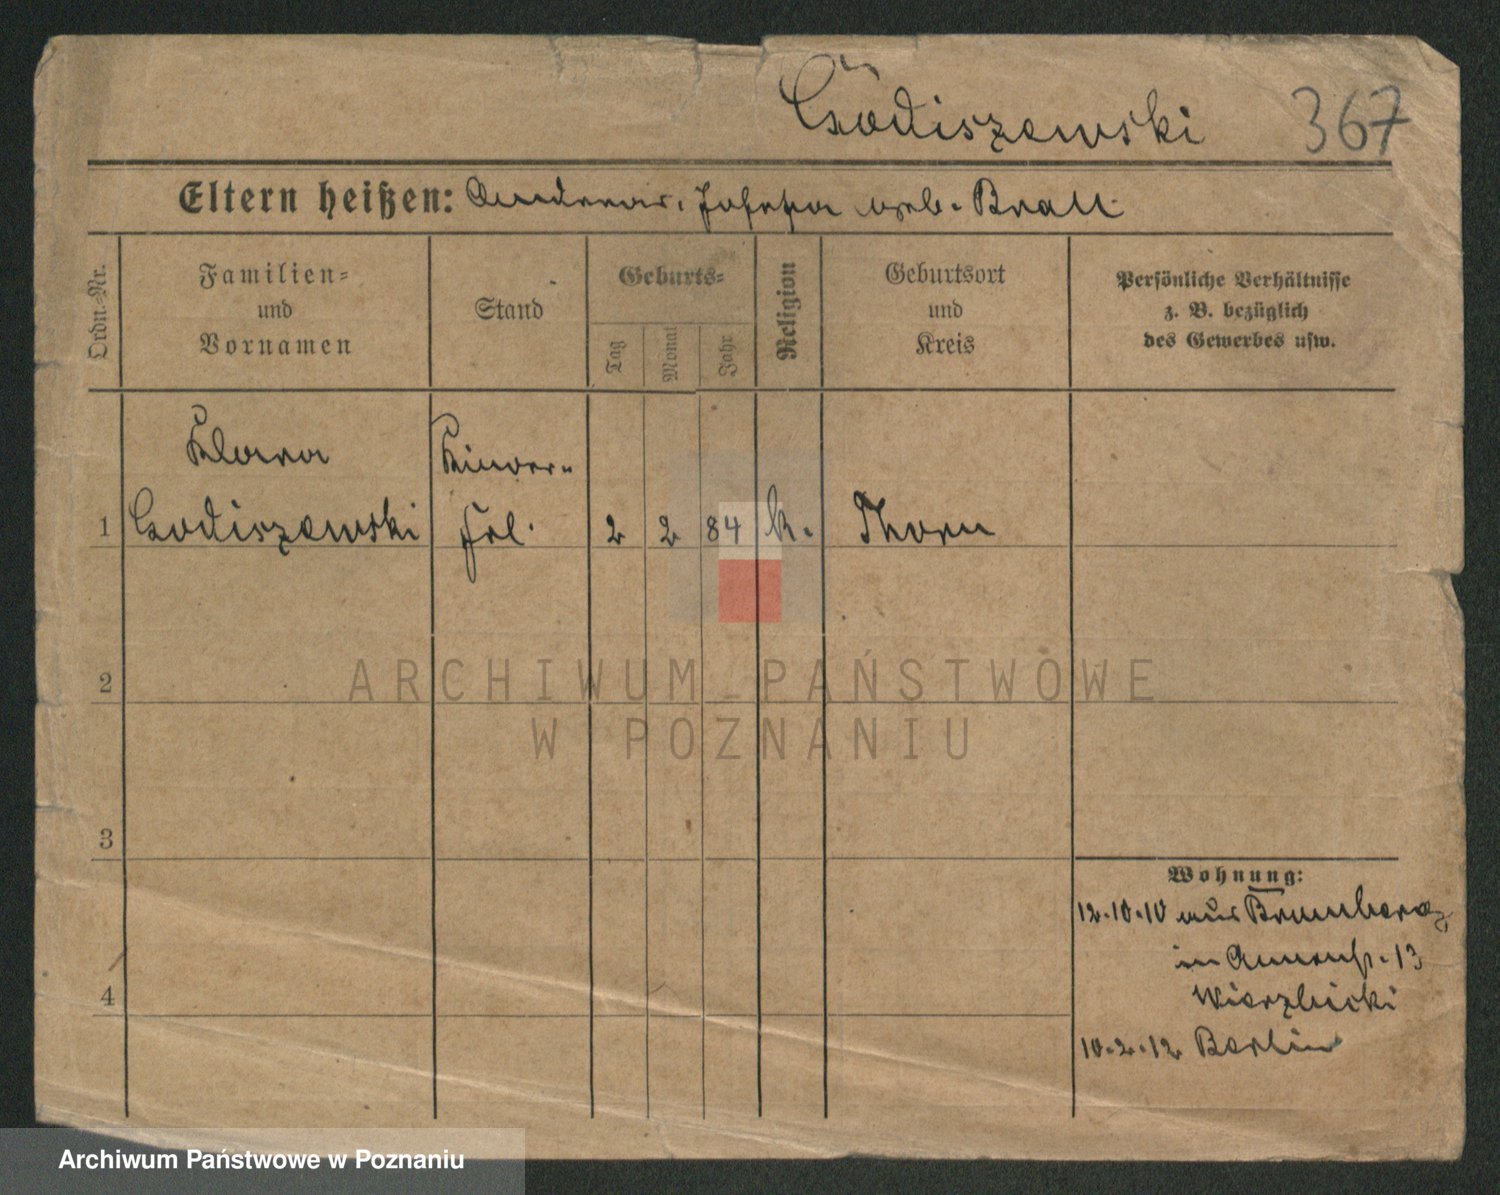 Godiszewski 367
Eltern heißen: Andreas, Josepha geb. Brall
Ordn.-Nr.
Familien-
und
Vornamen
Stand
Geburts-
Tag
Monat
Jahr
Religion
Geburtsort
und
Kreis
Persönliche Verhältnisse
z. B. bezüglich
des Gewerbes usw.
Klara Kinder-
1 Godiszewski frl. 2 2 84 k. Thorn
2
3
Wohnung:
12.10.10 aus Bromberg
in 13
4 Wierzbicki
10.2.12 Berlin
ARCHIWUM PAŃSTWOWE
W POZNANIU
Archiwum Państwowe w Poznaniu